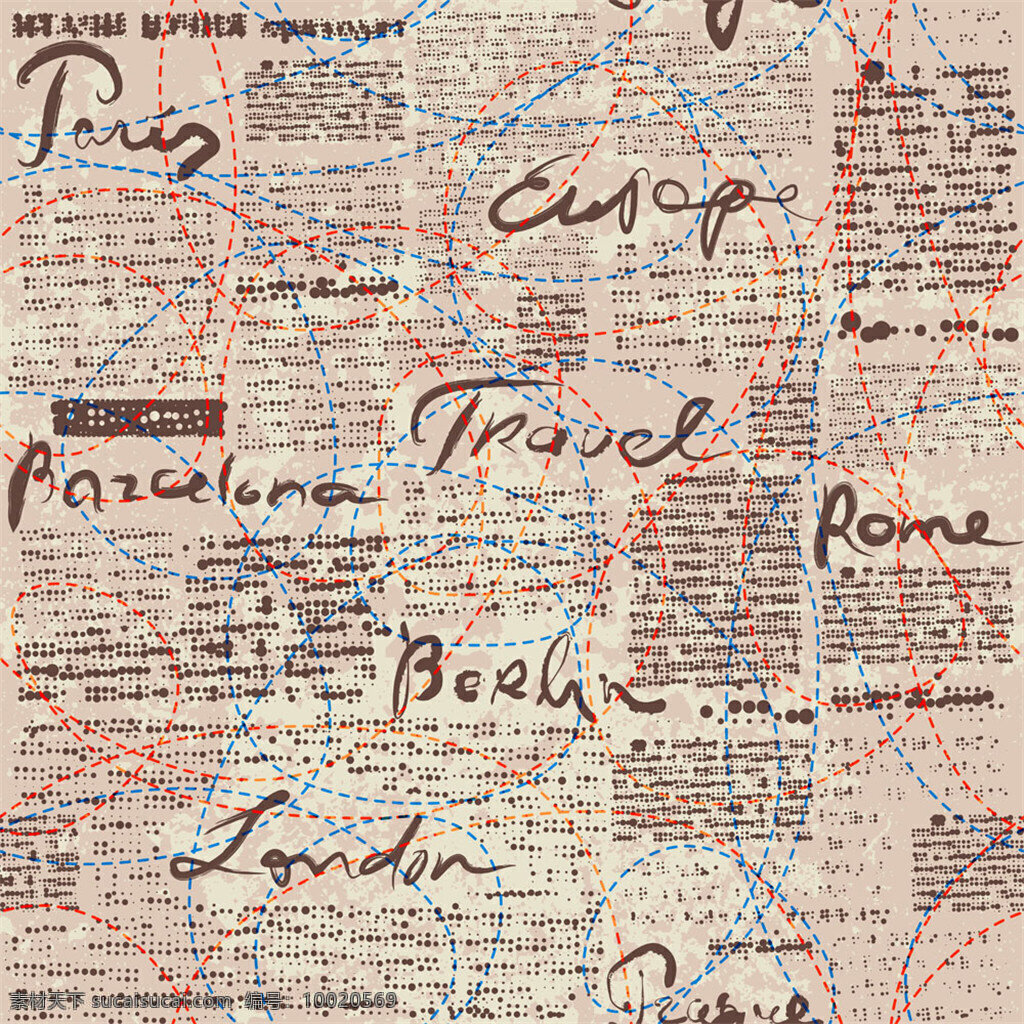 Paris
Europe
Travel
Barcelona
Rome
Berlin
London
Prague
素材天下 sucaisucai.com 编号：10020569